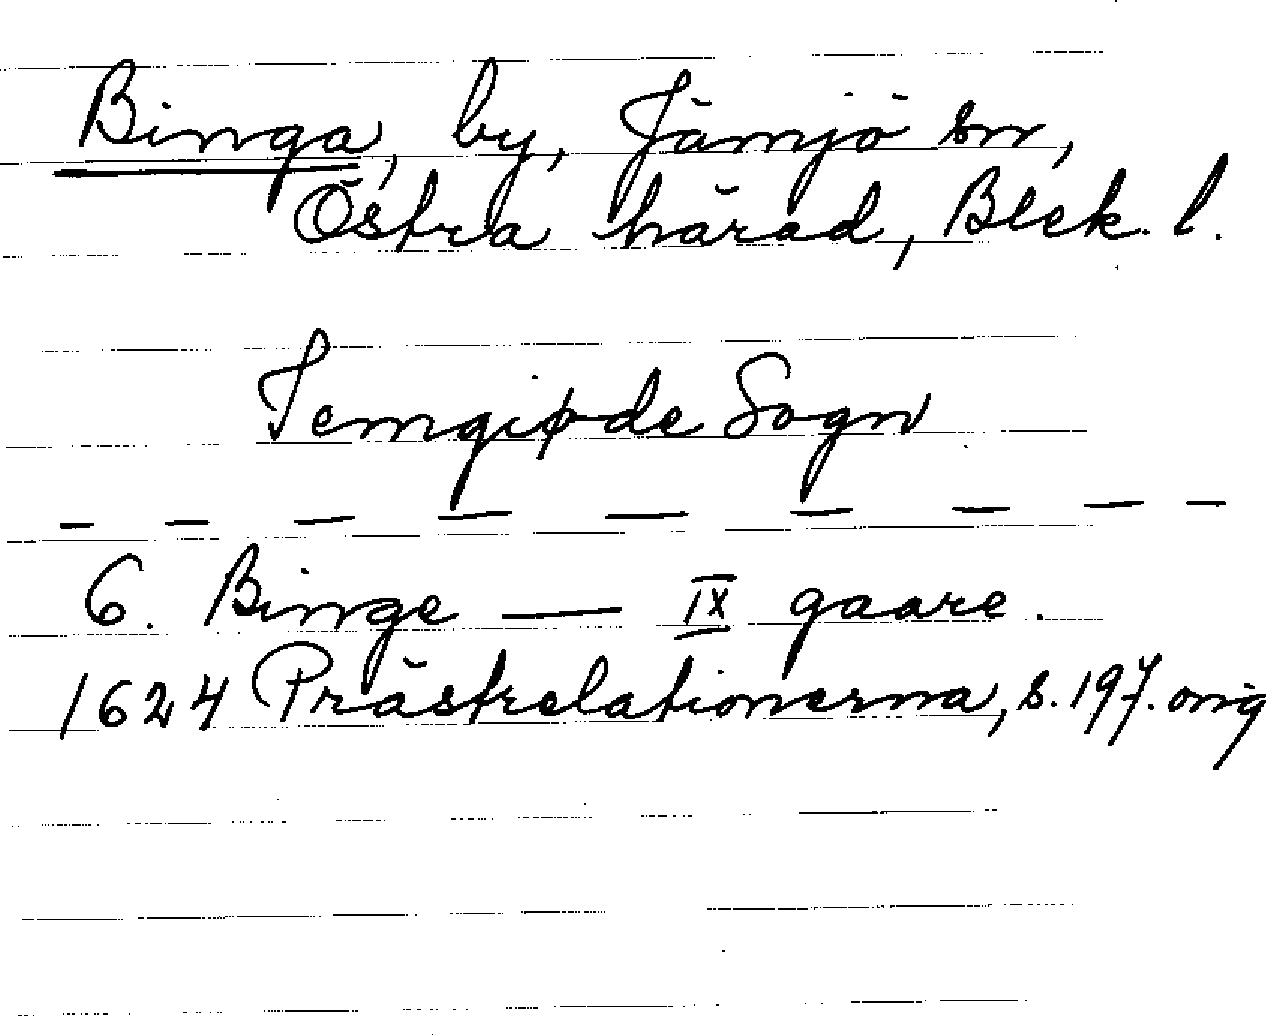 Binga, by, Jämjö sn,
Östra härad, Blek. l.
Jemgiøde Sogn
– – – – – – – – –
6. Binge — IX gaare.
1624 Prästrelationerna, s. 197. orig